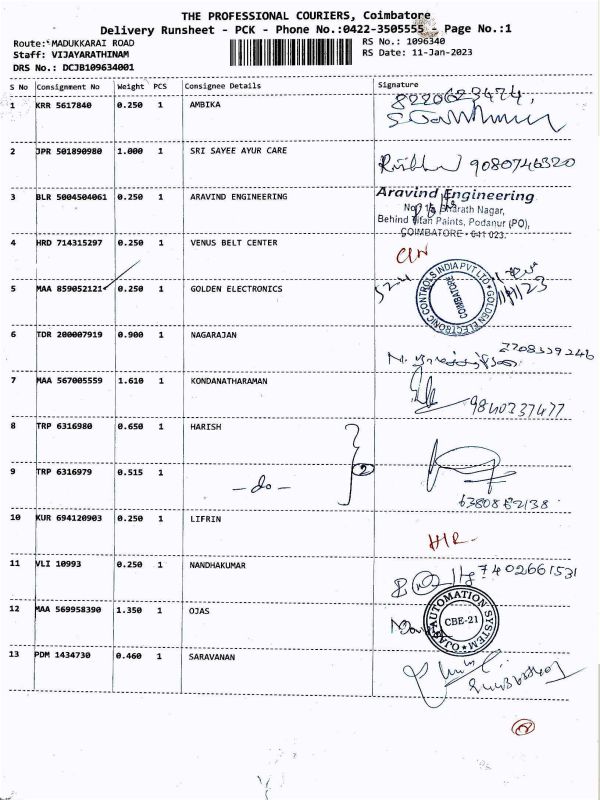 THE PROFESSIONAL COURIERS, Coimbatore
Delivery Runsheet - PCK - Phone No.:0422-3505555 - Page No.:1
Route: MADUKKARAI ROAD
RS No.: 1096340
Staff: VIJAYARATHINAM
RS Date: 11-Jan-2023
DRS No.: DCJB109634001
S No Consignment No Weight PCS Consignee Details Signature
1 KRR 5617840 0.250 1 AMBIKA
2 JPR 501890980 1.000 1 SRI SAYEE AYUR CARE 9080746320
3 BLR 5004504061 0.250 1 ARAVIND ENGINEERING
Aravind Engineering
Bharath Nagar,
Behind Titan Paints, Podanur (PO),
COIMBATORE - 641 023.
4 HRD 714315297 0.250 1 VENUS BELT CENTER
5 MAA 859052121 0.250 1 GOLDEN ELECTRONICS
GOLDEN ELECTRONIC CONTROLS INDIA PVT LTD
COIMBATORE
6 TDR 200007919 0.900 1 NAGARAJAN 7708339246
7 MAA 567005559 1.610 1 KONDANATHARAMAN 9840237477
8 TRP 6316980 0.650 1 HARISH
2
9 TRP 6316979 0.515 1 - do -
10 KUR 694120903 0.250 1 LIFRIN
11 VLI 10993 0.250 1 NANDHAKUMAR 7402661531
12 MAA 569958390 1.350 1 OJAS
OJAS AUTOMATION SYSTEM
CBE-21
13 PDM 1434730 0.460 1 SARAVANAN